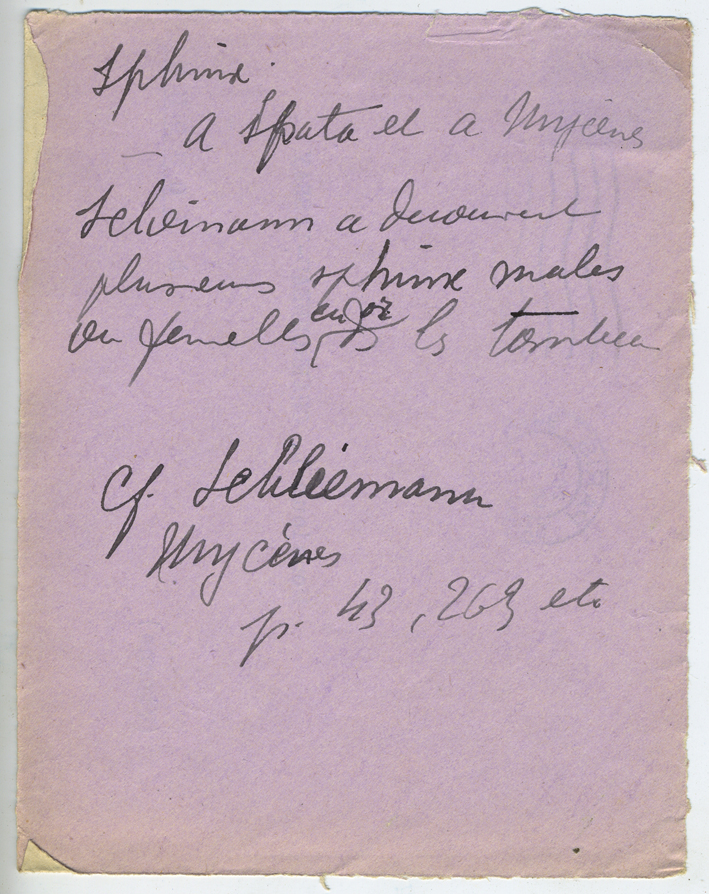 Sphinx.
— A Spata et a Mycènes
Schliemann a decouvert
plusieurs sphinx males
ou femelles, en or ds les tombeau
cf. Schliemann
Mycènes
p. 43, 269 etc